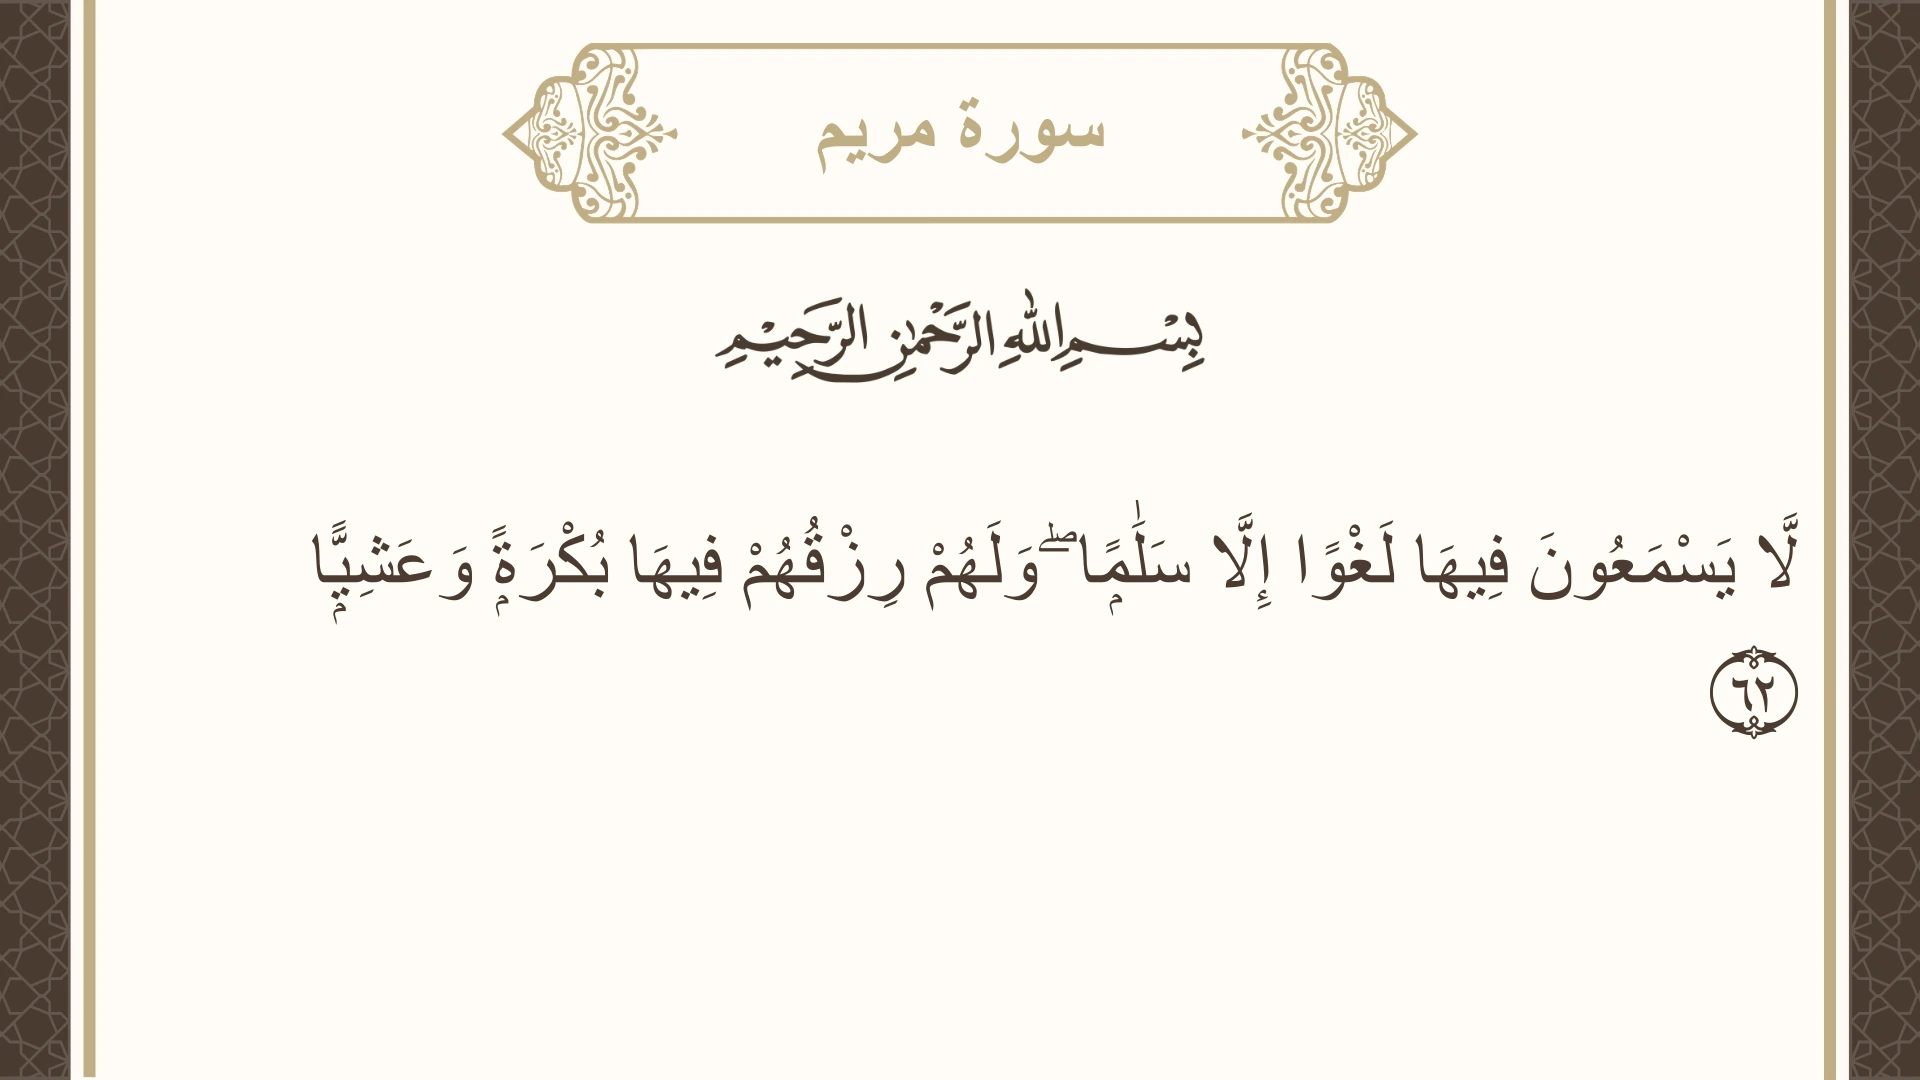 سورة مريم
بِسْمِ اللهِ الرَّحْمٰنِ الرَّحِيْمِ
لَّا يَسْمَعُونَ فِيهَا لَغْوًا إِلَّا سَلَٰمًۭا ۖ وَلَهُمْ رِزْقُهُمْ فِيهَا بُكْرَةًۭ وَعَشِيًّۭا
٦٢